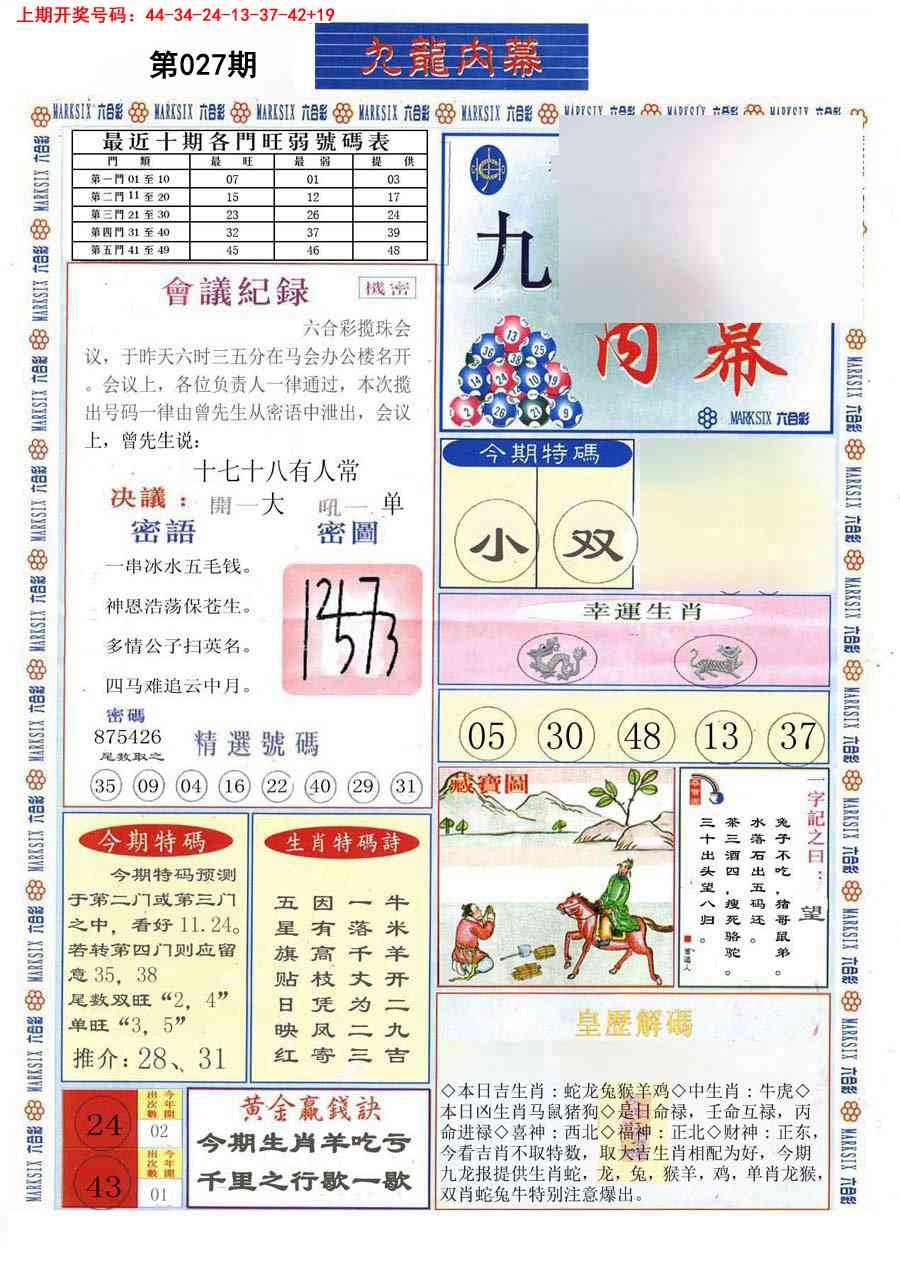 上期开奖号码：44-34-24-13-37-42+19
第027期
九龍内幕
MARKSIX 六合彩 MARKSIX 六合彩 MARKSIX 六合彩 MARKSIX 六合彩 MARKSIX 六合彩
最近十期各門旺弱號碼表
門類 最旺 最弱 提供
第一門01至10 07 01 03
第二門11至20 15 12 17
第三門21至30 23 26 24
第四門31至40 32 37 39
第五門41至49 45 46 48
會議紀録
機密
六合彩揽珠会
议，于昨天六时三五分在马会办公楼名开
。会议上，各位负责人一律通过，本次揽
出号码一律由曾先生从密语中泄出，会议
上，曾先生说：
十七十八有人常
决議：開一大 吼一 单
密語
密圖
一串冰水五毛钱。
神恩浩荡保苍生。
多情公子扫英名。
四马难追云中月。
密碼
875426
尾数取之
精選號碼
35 09 04 16 22 40 29 31
九
内幕
13
36 38 25
14 24 10 19
2 26 21 9
MARKSIX 六合彩
今期特碼
小 双
幸運生肖
05 30 48 13 37
藏寶圖
一字記之曰：望
兔子不吃，猪哥鼠弟。
水落石出五码还。
茶三酒四，瘦死骆驼。
三十出头望八归。
今期特碼
今期特码预测
于第二门或第三门
之中，看好11.24。
若转第四门则应留
意35，38
尾数双旺“2，4”
单旺“3，5”
推介：28、31
生肖特碼詩
牛米羊开二九吉
一落千丈为二三
因有高枝凭凤寄
五星旗贴日映红
24
今年開出次數
02
43
今年開出次數
01
黄金赢錢訣
今期生肖羊吃亏
千里之行歌一歇
皇歷解碼
◇本日吉生肖：蛇龙兔猴羊鸡◇中生肖：牛虎◇
本日凶生肖马鼠猪狗◇是日命禄，壬命互禄，丙
命进禄◇喜神：西北◇福神：正北◇财神：正东，
今看吉肖不取特数，取大吉生肖相配为好，今期
九龙报提供生肖蛇，龙，兔，猴羊，鸡，单肖龙猴，
双肖蛇兔牛特别注意爆出。